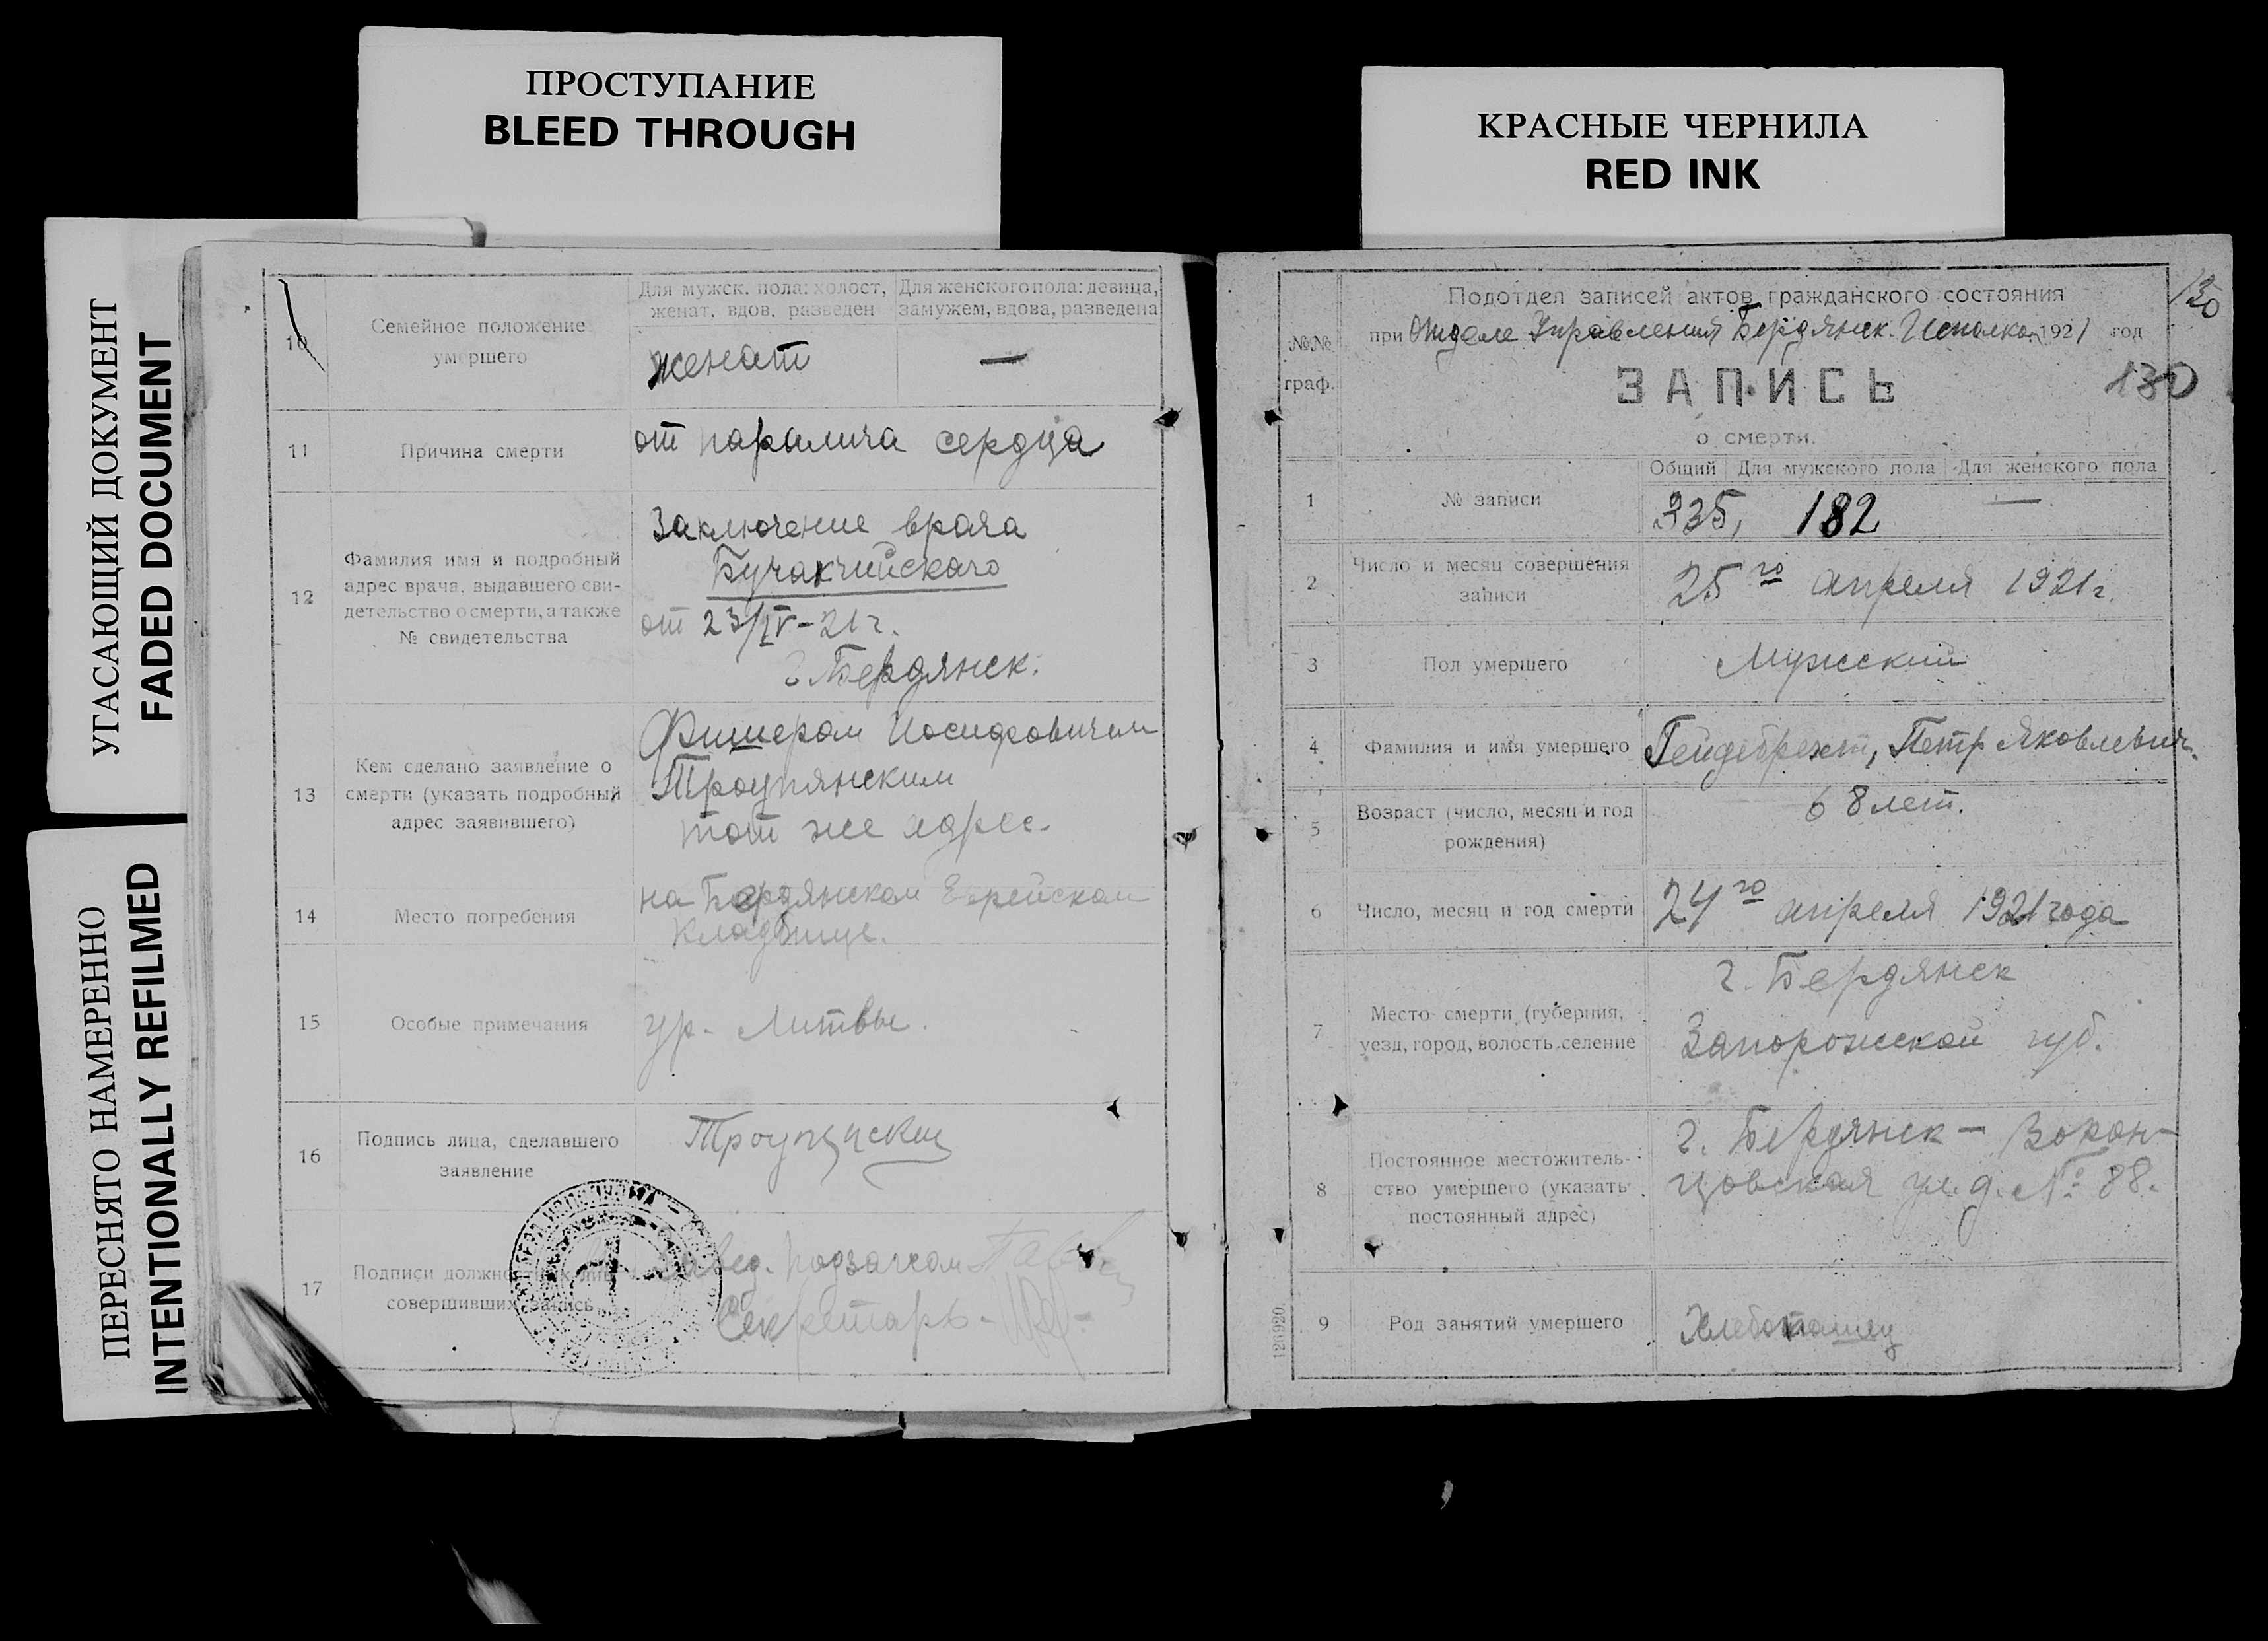 ПРОСТУПАНИЕ
BLEED THROUGH
КРАСНЫЕ ЧЕРНИЛА
RED INK
УГАСАЮЩИЙ ДОКУМЕНТ
FADED DOCUMENT
ПЕРЕСНЯТО НАМЕРЕННО
INTENTIONALLY REFILMED
10
Семейное положение
умершего
Для мужск. пола: холост,
женат, вдов, разведен
Для женского пола: девица,
замужем, вдова, разведена
женат
—
11
Причина смерти
от паралича сердца
12
Фамилия имя и подробный
адрес врача, выдавшего сви-
детельство о смерти, а также
№ свидетельства
Заключение врача
Бучакчийского
от 23/IV-21 г.
г. Бердянск.
13
Кем сделано заявление о
смерти (указать подробный
адрес заявившего)
Фишером Иосифовичем
Троупянским
тот же адрес.
14
Место погребения
на Бердянском Еврейском
Кладбище.
15
Особые примечания
ур. Литвы.
16
Подпись лица, сделавшего
заявление
Троупянский
17
Подписи должностных лиц
совершивших запись
Завед. Подзагсом
Секретарь -
130
№№
граф.
Подотдел записей актов гражданского состояния
при Отделе Управления Бердянск. Исполком 1921 год
130
ЗАПИСЬ
о смерти.
1
№ записи
Общий
Для мужского пола
Для женского пола
335, 182 —
2
Число и месяц совершения
записи
25го апреля 1921 г.
3
Пол умершего
Мужский
4
Фамилия и имя умершего
Гейдебрехт, Петр Яковлевич.
5
Возраст (число, месяц и год
рождения)
68 лет.
6
Число, месяц и год смерти
24го апреля 1921 года
7
Место смерти (губерния,
уезд, город, волость селение
г. Бердянск
Запорожской губ.
8
Постоянное местожитель-
ство умершего (указать
постоянный адрес)
г. Бердянск - Ворон-
цовская ул. д. № 88.
9
Род занятий умершего
Хлебопашец
126920